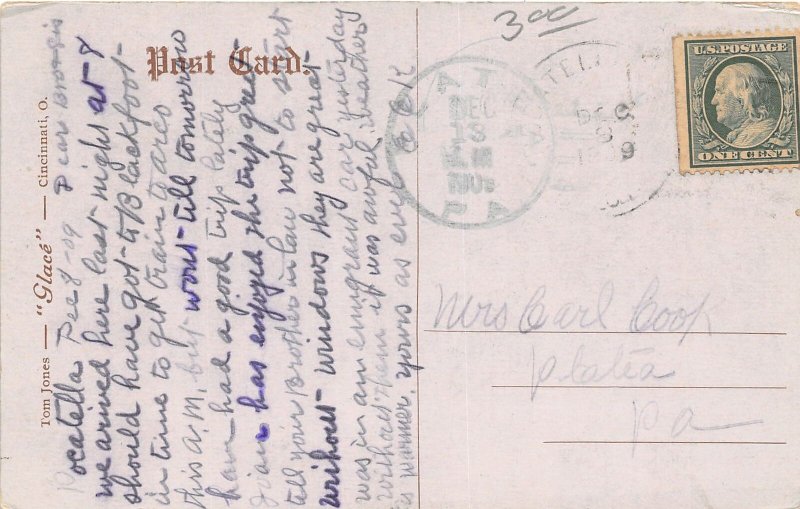 3.00
U.S.POSTAGE
ONE CENT
Post Card.
Tom Jones — "Glacé" — Cincinnati, O.
PLATEA
DEC
13
1909
PA
DEC
9
1909
Pocatella Dec 8 - 09 Dear
we arrived here last night at 8
should have got to Blackfoot
in time to get train to
this a.m. but wont till tomorrow
have had a good trip lately
has enjoyed the trip great
tell your Brother in law not to start
without windows they are great
was in an emigrant car yesterday
without them it was awful weather
is warmer, yours as ever
Mrs Carl Cook
Platea
Pa